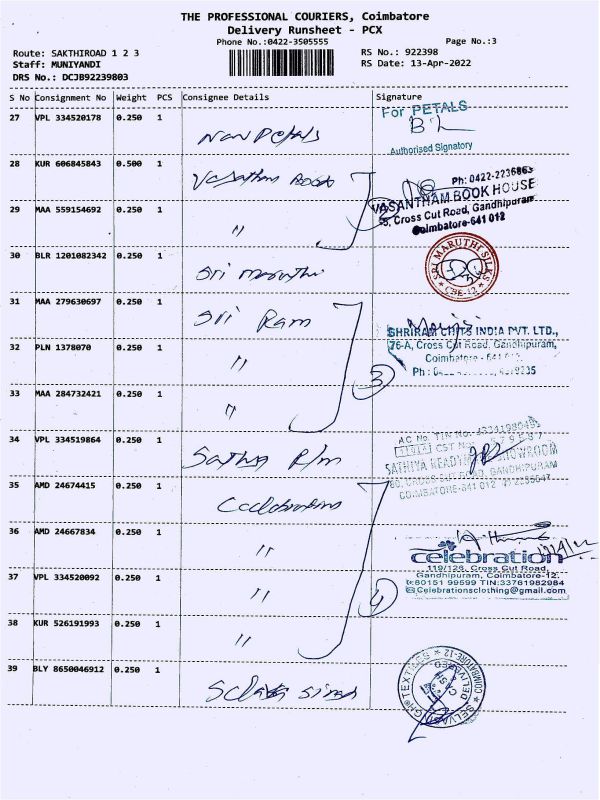 THE PROFESSIONAL COURIERS, Coimbatore
Delivery Runsheet - PCX
Phone No.:0422-3505555 Page No.:3
Route: SAKTHIROAD 1 2 3 RS No.: 922398
Staff: MUNIYANDI RS Date: 13-Apr-2022
DRS No.: DCJB92239803
S No Consignment No Weight PCS Consignee Details Signature
27 VPL 334520178 0.250 1 For PETALS
Authorised Signatory
28 KUR 606845843 0.500 1 Ph: 0422-2236863
VASANTHAM BOOK HOUSE
29 MAA 559154692 0.250 1 〃 Cross Cut Road, Gandhipuram
Coimbatore-641 012
30 BLR 1201082342 0.250 1 Sri Maruthi SRI MARUTHI SILKS CBE-12
31 MAA 279630697 0.250 1 Sri Ram
SHRIRAM CHITS INDIA PVT. LTD.,
32 PLN 1378070 0.250 1 〃 76-A, Cross Cut Road, Gandhipuram,
Coimbatore
Ph :
33 MAA 284732421 0.250 1 〃 3
34 VPL 334519864 0.250 1 Sathya R/m
CROSS CUT ROAD, GANDHIPURAM
COIMBATORE-641 012
35 AMD 24674415 0.250 1 Celebrations
36 AMD 24667834 0.250 1 〃
celebration
119/129, Cross Cut Road,
37 VPL 334520092 0.250 1 〃 Gandhipuram, Coimbatore-12.
80151 99599 TIN:33761982984
Celebrationsclothing@gmail.com
4
38 KUR 526191993 0.250 1 〃
39 BLY 8650046912 0.250 1 SELVASINGH TEXTILES COIMBATORE-12 DELIVERED